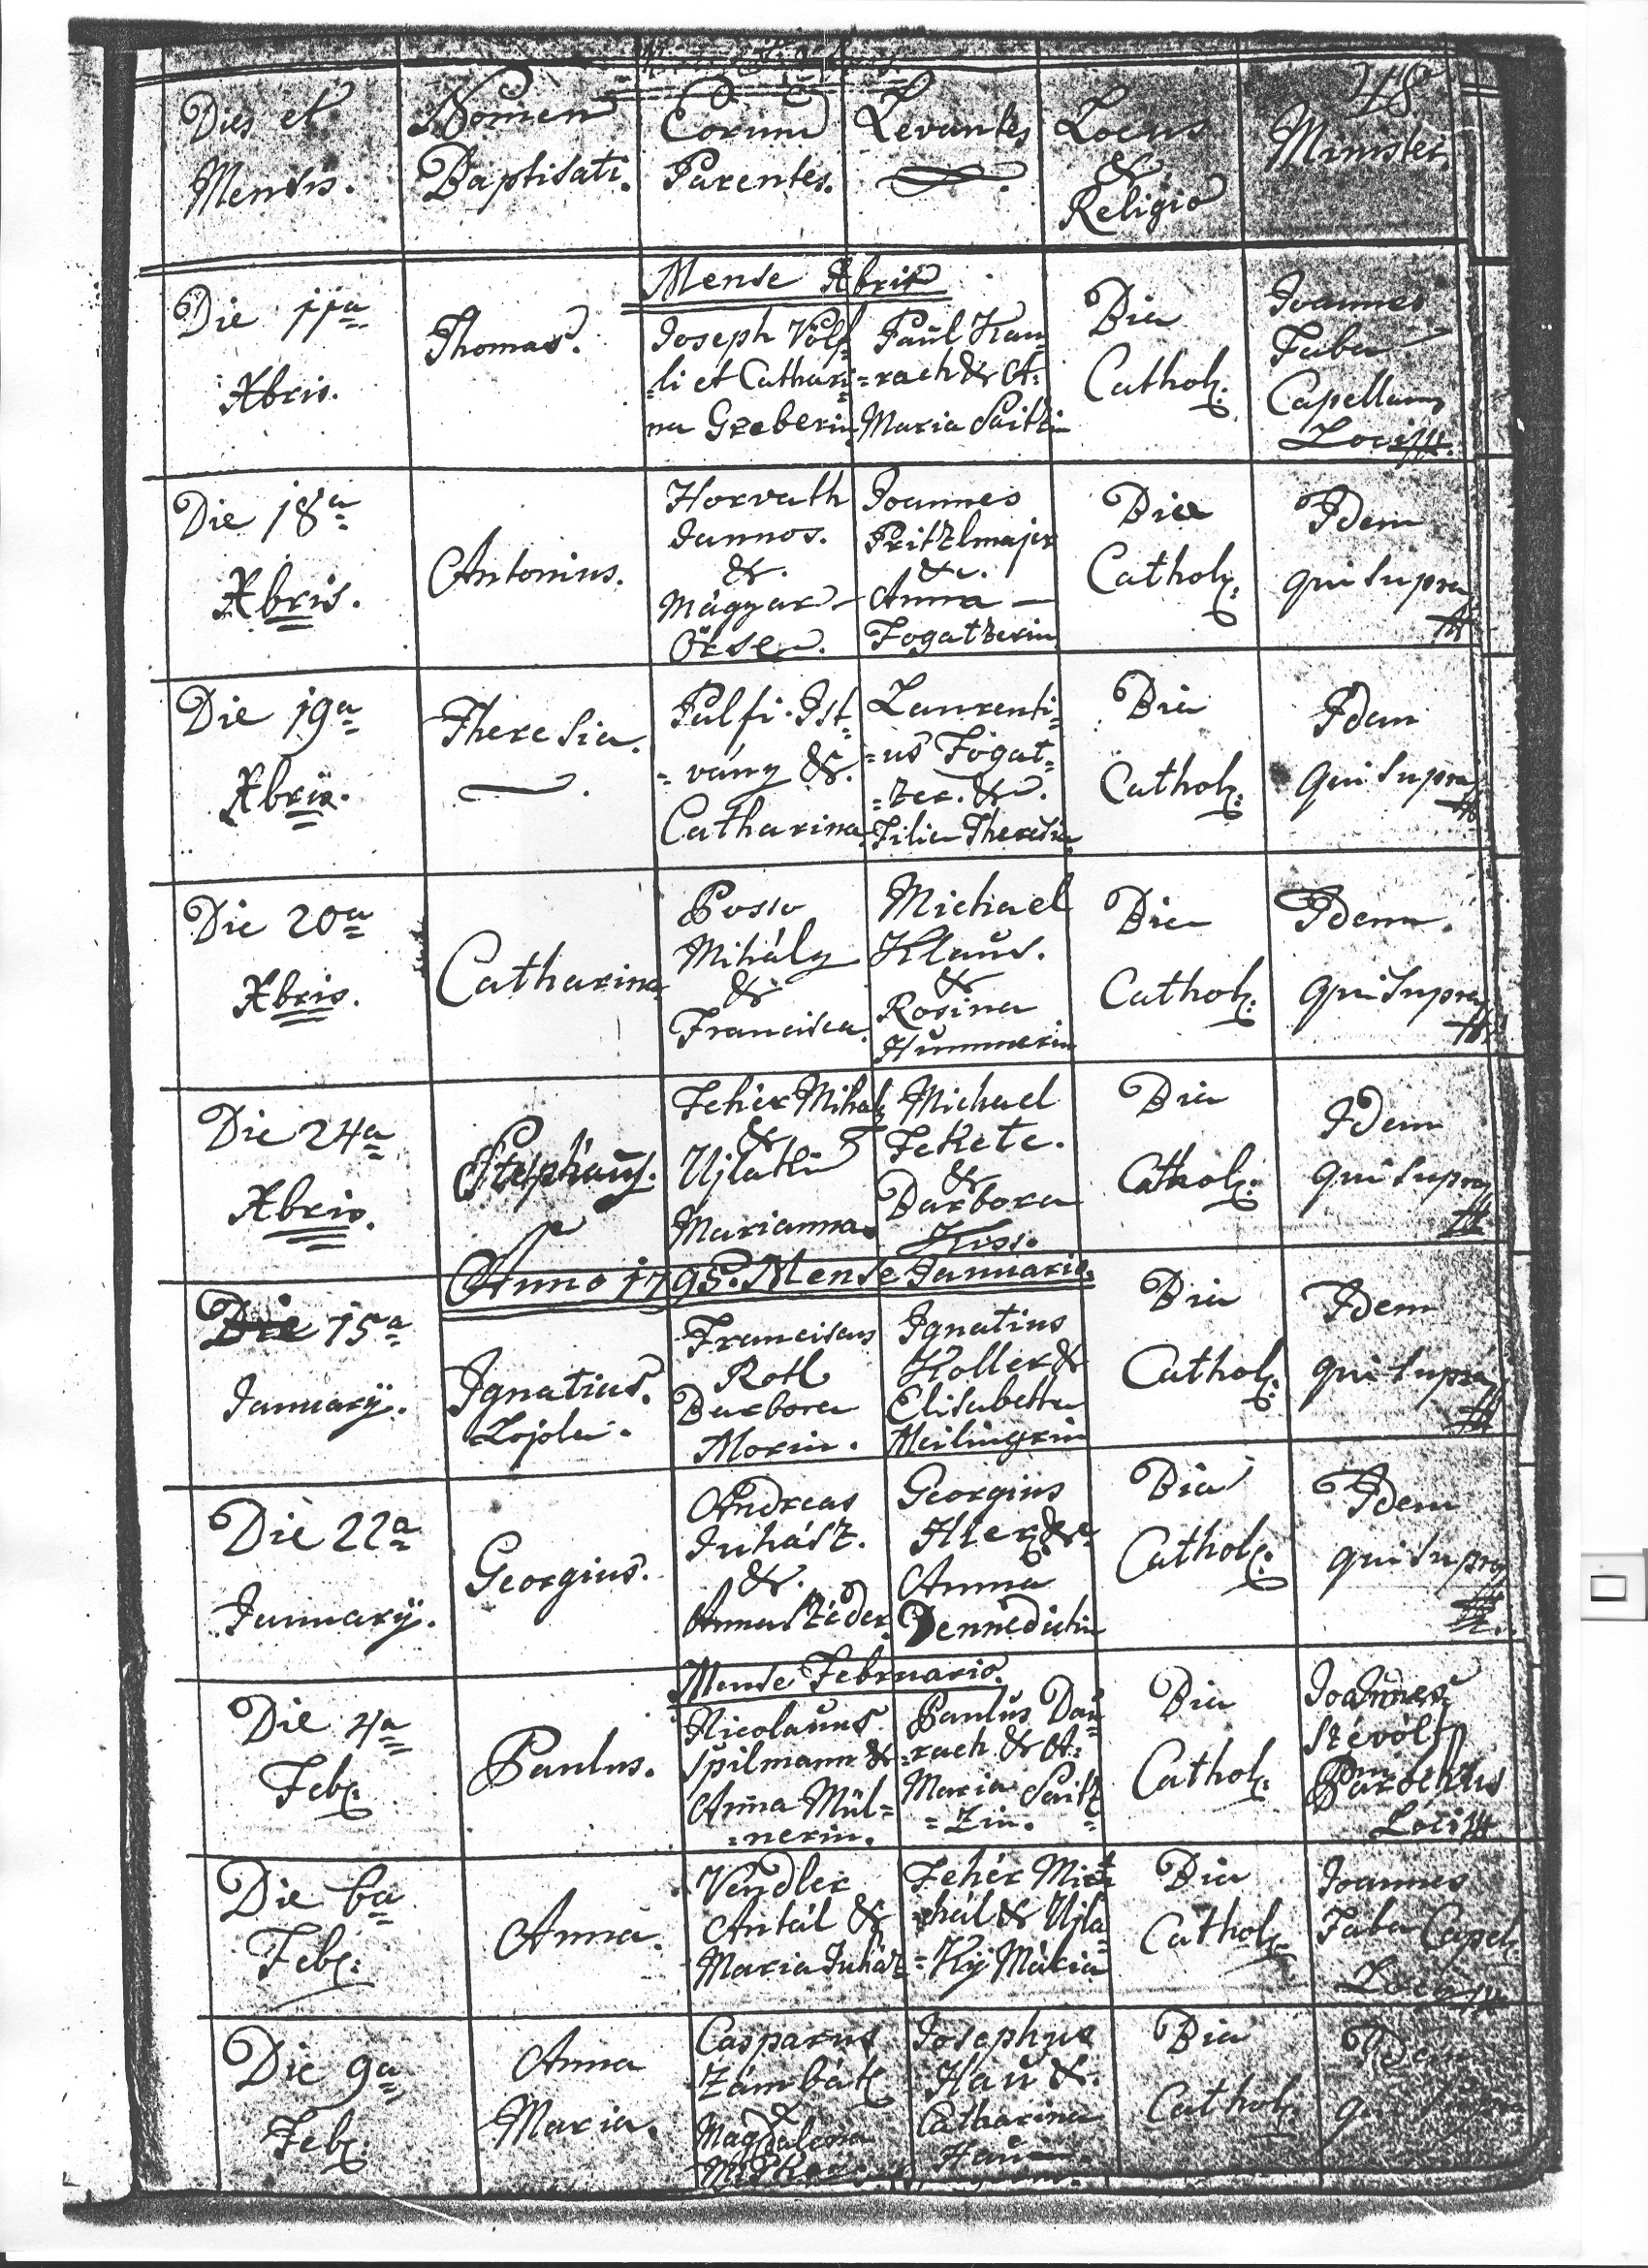 48
Dies et
Mensis.
Nomen
Baptisati.
Corum
Parentes.
Levantes
Locus
&
Religio
Minister.
Mense Xbris
Die 11a
Xbris.
Thomas.
Joseph Völf=
=li et Cathari=
na Greberin
Paul Hau=
=rach & A:
Maria Saitzin
Bia
Cathol:
Joannes
Faber
Capellanus
Loci
Die 18a
Xbris.
Antonius.
Horvath
Jannos.
&.
Mágyar
Örse.
Joannes
Pritzlmajer
&.
Anna
Fogatzerin
Bia
Cathol:
Idem
qui supra
Die 19a
Xbris.
Theresia.
Palfi Ist=
=vány &.
Catharina
Laurenti=
=us Fogat=
=zer. &.
Filia Theresia
Bia
Cathol:
Idem
qui supra
Die 20a
Xbris.
Catharina
Posso
Mihály
&
Francisca.
Michael
Klaus.
&
Rosina
Hummerin
Bia
Cathol:
Idem.
qui supra
Die 24a
Xbris.
Stephanus.
Fehér Mihaly
&
Ujlaki
Marianna.
Michael
Fekete.
&
Barbora
Kiss.
Bia
Cathol:
Idem
qui supra
Anno 1795. Mense Januario.
Die 15a
January.
Ignatius.
Lojola.
Franciscus
Rotl
Barbora
Morin.
Ignatius
Koller &
Elisabetha
Meilingerin
Bia
Cathol:
Idem
qui supra
Die 22a
January.
Georgius.
Andreas
Juhász.
&.
Anna Széder
Georgius
&
Anna
Bennedictin
Bia
Cathol:
Idem
qui supra
Mense Februario.
Die 4a
Feb:
Paulus.
Nicolaus
Spilmann &
Anna Mül=
=nerin.
Paulus Dau=
=rach & A:
Maria Saitz=
=zin.
Bia
Cathol:
Joannes
Szévólt
Parochus
Loci
Die 6a
Feb:
Anna.
Vendler
Antál &
Maria Juház
Fehér Mi=
=hál & Ujla=
=ky Mária
Bia
Cathol:
Joannes
Faber Capel:
Loci
Die 9a
Feb:
Anna
Maria.
Casparus
Zámbátz
&
Magdalena
Josephus
Hau &.
Catharina
Bia
Cathol:
Idem
qui supra